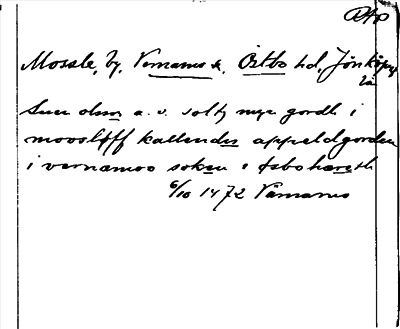 RAp
Mossle, by, Vernamo s., Östbo hd, Jönköpgs
län
Suen olson a. v. solth myn gordh i
mooslöff kallendes appeldgorden
i vernamoo soken i østbohæreth
6/10 1472 Värnamo